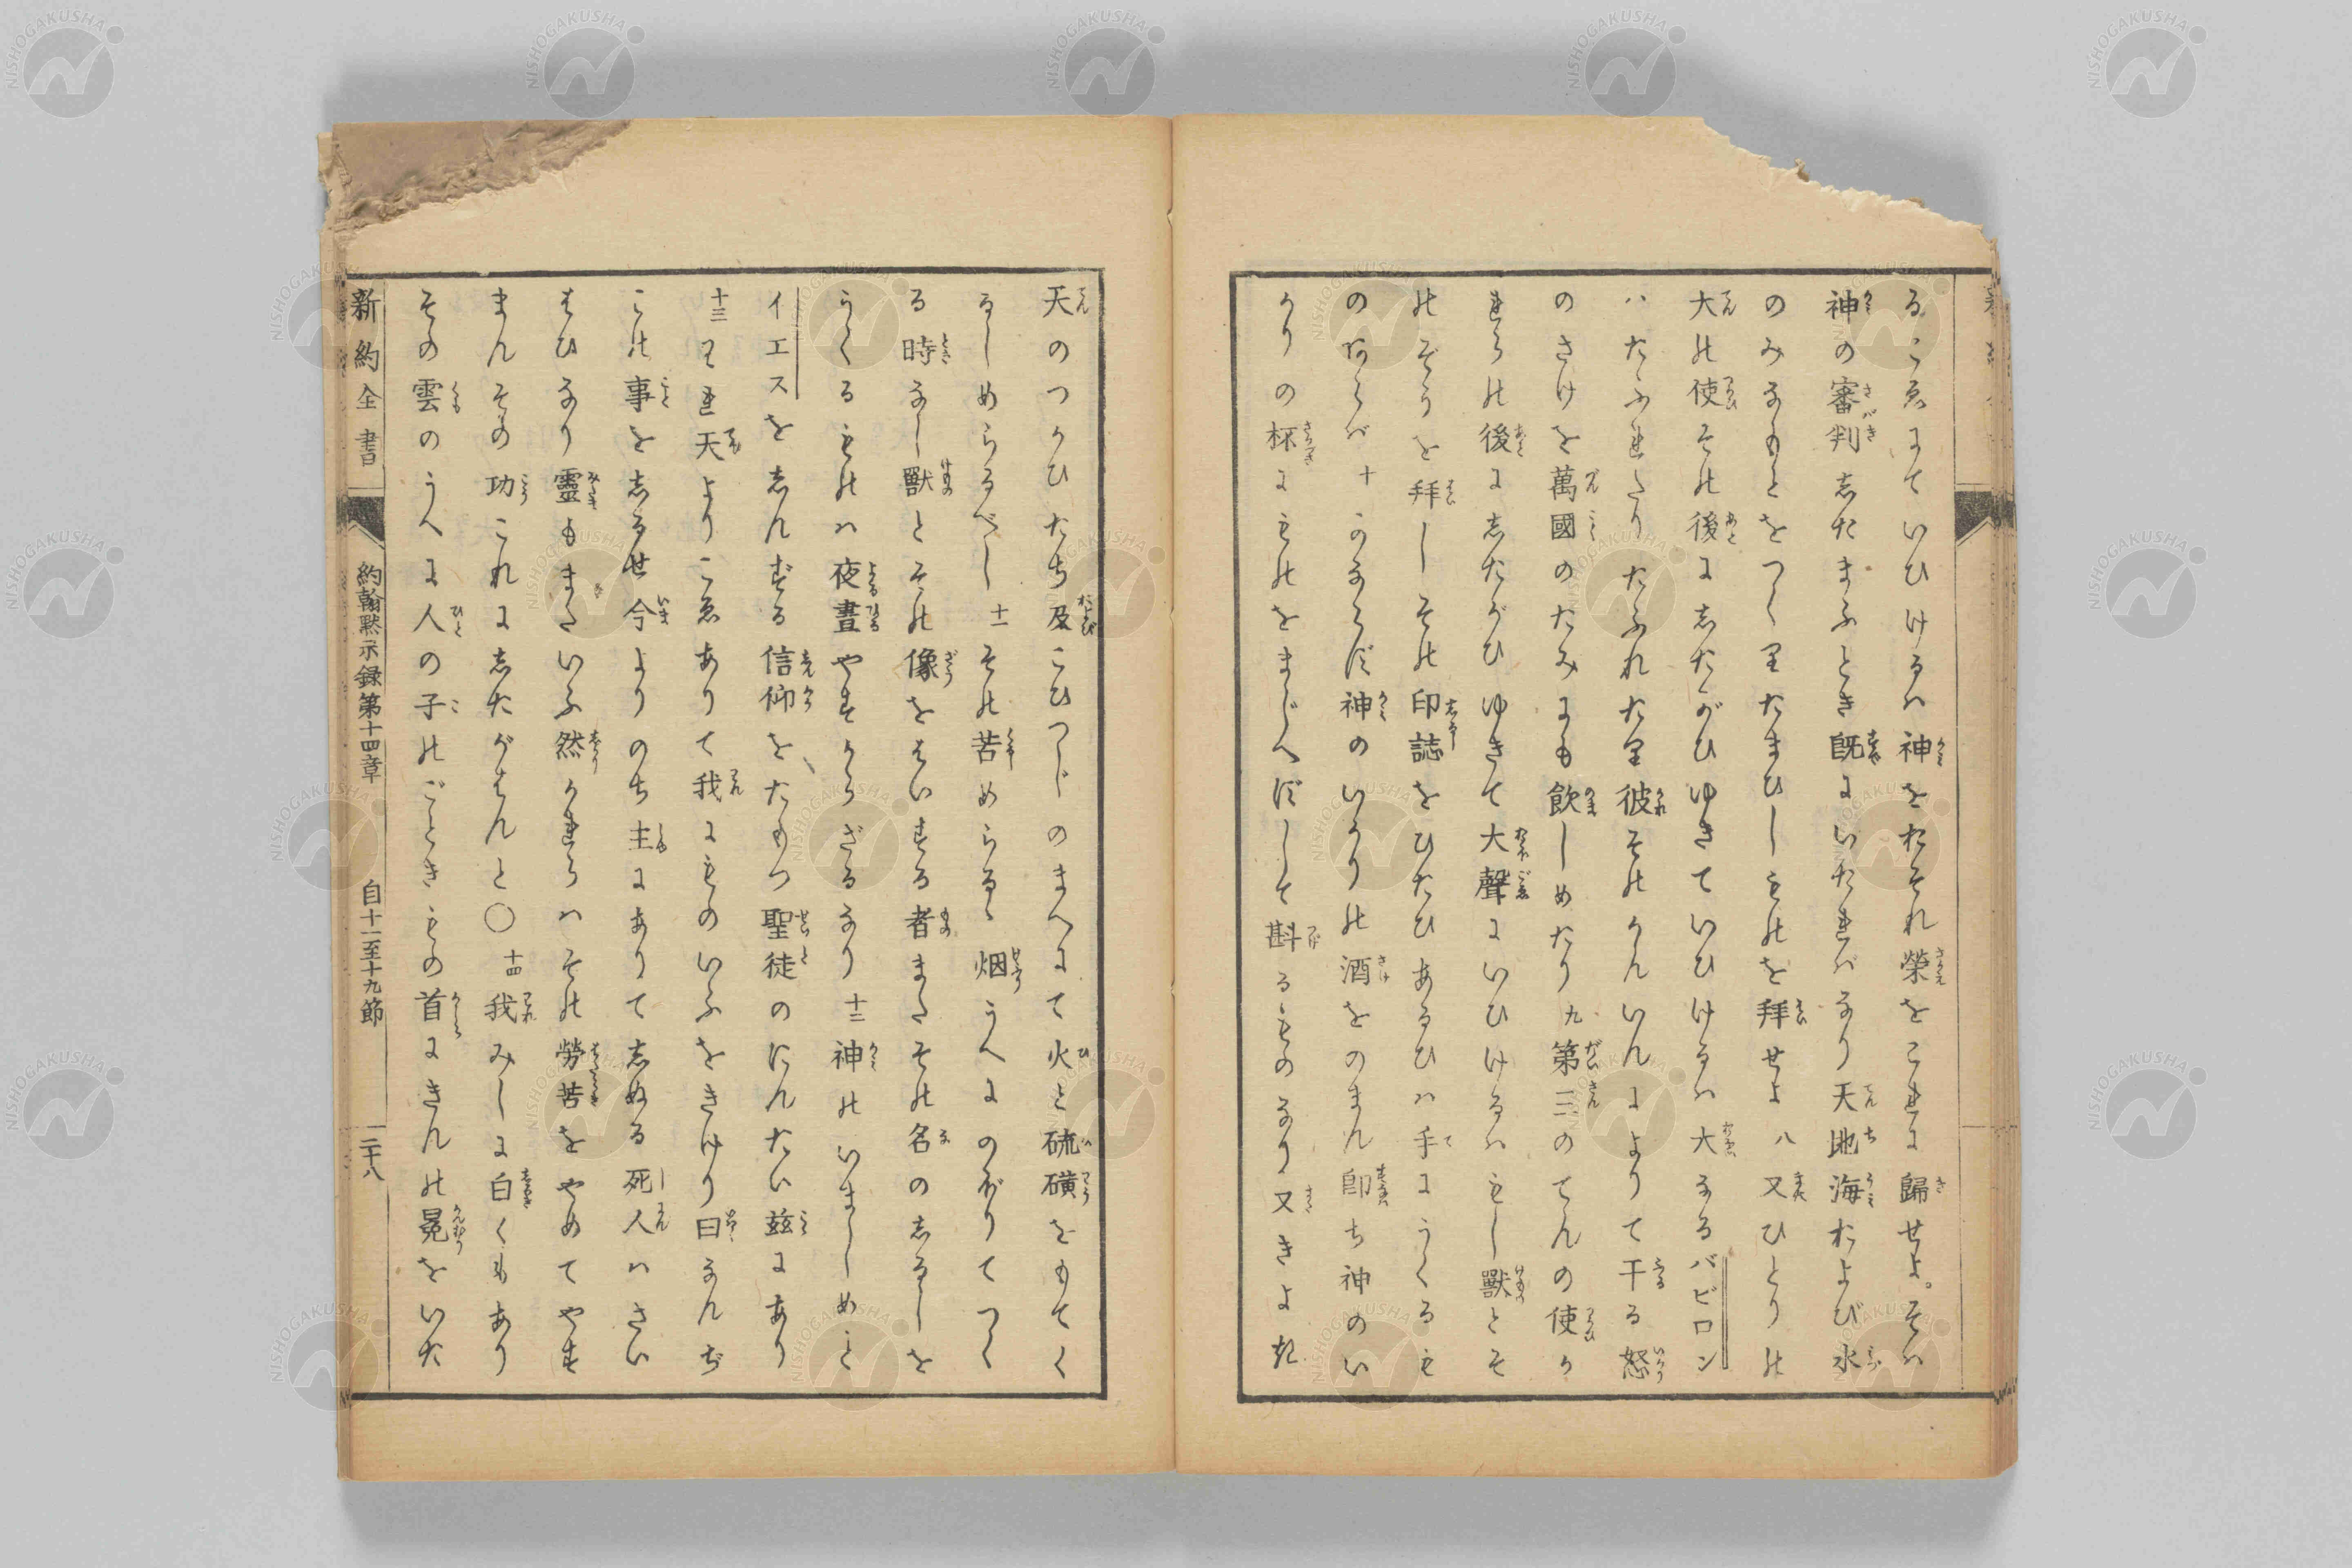 るこゑにていひけるハ神をおそれ榮をこれに歸せよ。そハ
神の審判志たまふとき既にいたれバなり天地海および水
のみなもとをつくりたまひしものを拜せよ 八 又ひとりの
天の使その後に志たがひゆきていひけるハ大なるバビロン
ハたふれたりたふれたり彼その かんいんによりて干る怒
のさけを萬國のたみにも飲しめたり 九 第三のてんの使か
れらの後に志たがひゆきて大聲にいひけるハもし獸とそ
のぞうを拜しその印誌をひたひあるひハ手にうくるも
のあらバ 十 かならず神のいかりの酒をのまん即ち神のい
かりの杯にものをまじへずして斟るものなり又きよき
天のつかひたち及こひつじのまへにて火と硫磺をもてく
るしめらるべし 十一 その苦めらるゝ烟うへにのぼりてつく
る時なし獸とその像をはいする者またその名の志るしを
うくるものハ夜晝やすからざるなり 十二 神のいましめと
イエスを志んずる信仰をたもつ聖徒のにんたい茲にあり
十三 われ天よりこゑありて我にものいふをきけり曰なんぢ
この事を志るせ今よりのち主にありて志ぬる死人ハさい
はひなり靈もまたいふ然かれらハその勞苦をやめてやす
まんその功これに志たがはんと〇 十四 我みしに白くもあり
その雲のうへに人の子のごときもの首にきんの冕をいた
新約全書
約翰黙示録第十四章 自十一至十九節
二十八